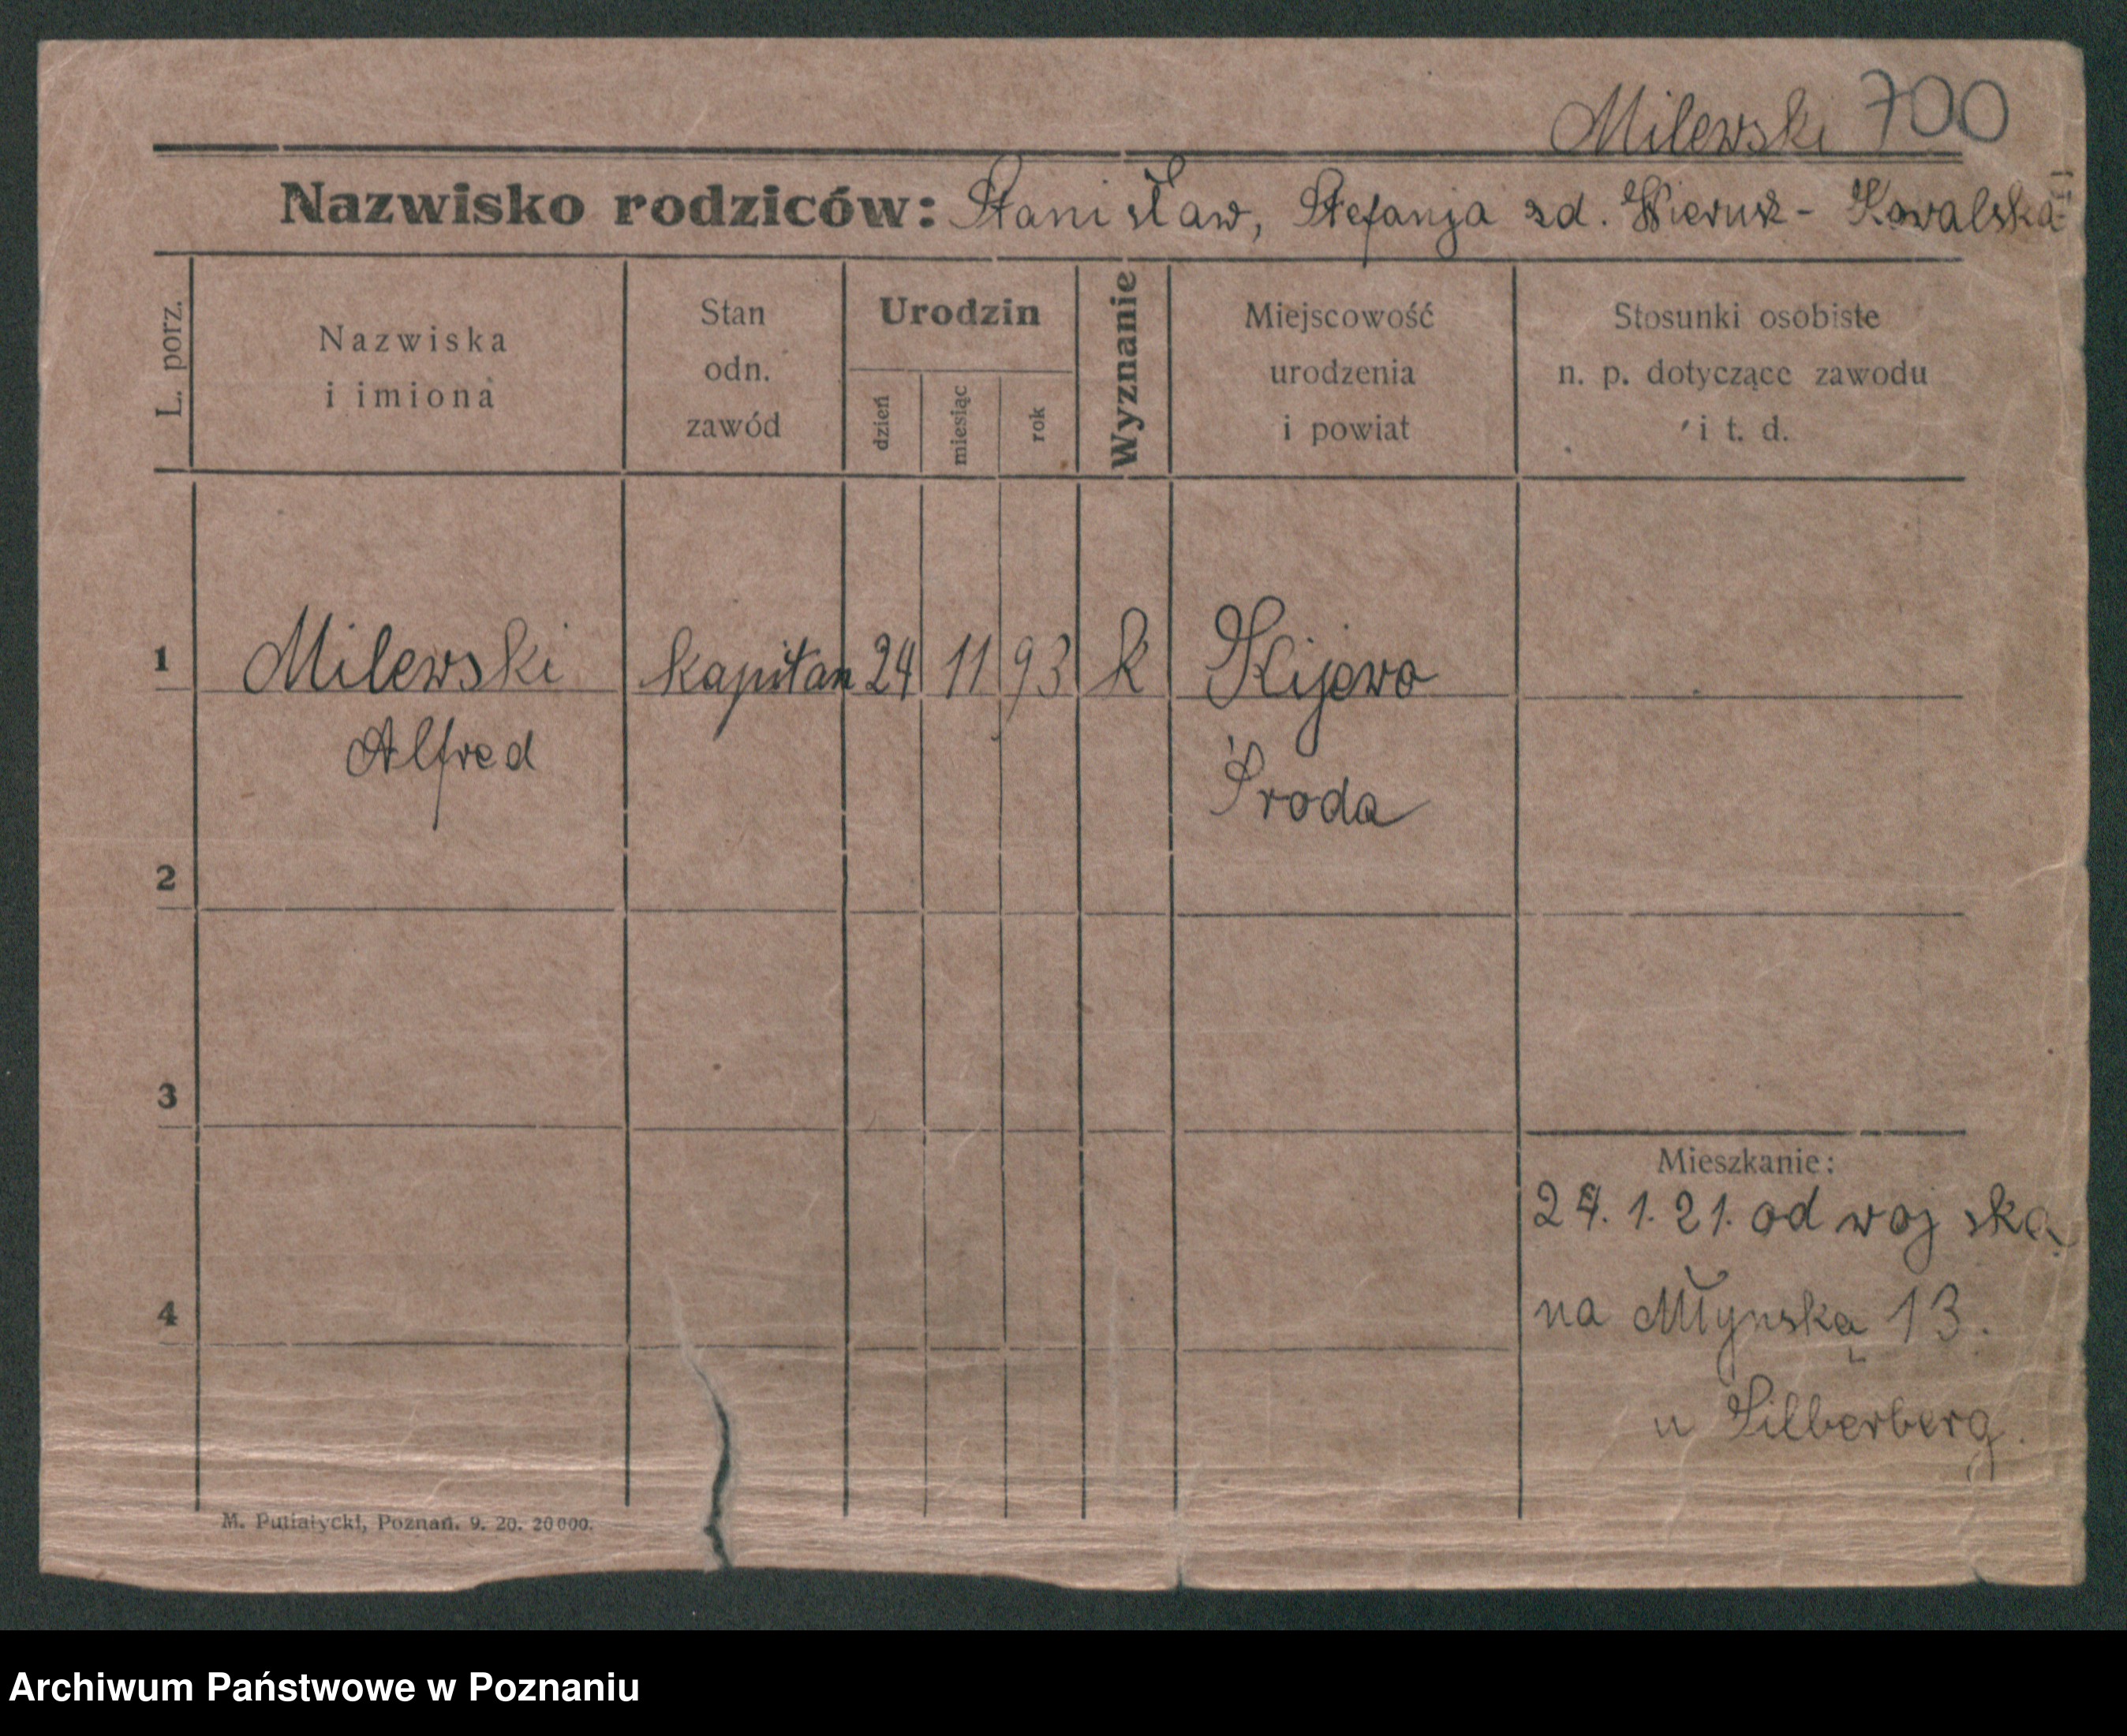 Milewski 700
Nazwisko rodziców: Stanisław, Stefanja zd. Wierusz-Kowalska
L. porz.
Nazwiska
i imiona
Stan
odn.
zawód
Urodzin
dzień
miesiąc
rok
Wyznanie
Miejscowość
urodzenia
i powiat
Stosunki osobiste
n. p. dotyczące zawodu
i t. d.
1 Milewski kapitan 24 11 93 k Kijewo
Alfred Środa
2
3
Mieszkanie:
24. 1. 21. od wojska
na Młyńską 13.
4
u Silberberg.
M. Putiatycki, Poznań. 9. 20. 20000.
Archiwum Państwowe w Poznaniu